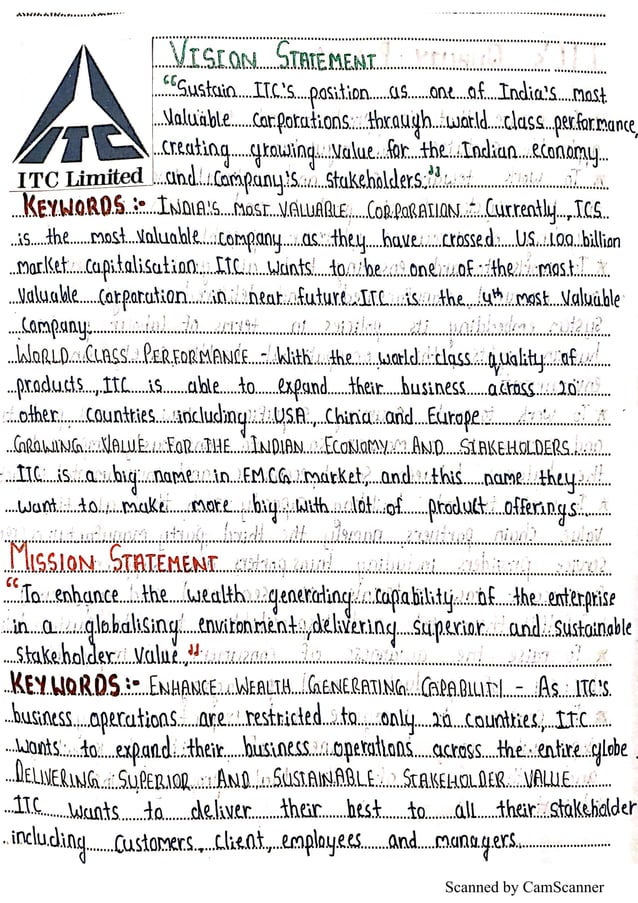 VISION STATEMENT
"Sustain ITC's position as one of India's most
Valuable Corporations through world class performance,
creating growing value for the Indian economy
ITC
ITC Limited
and Company's stakeholders."
KEYWORDS :- INDIA'S MOST VALUABLE CORPORATION - Currently, TCS
is the most valuable company as they have crossed US 100 billion
market capitalisation. ITC wants to be one of the most
Valuable Corporation in near future ITC is the 4th most valuable
Company.
WORLD CLASS PERFORMANCE - With the world class quality of
products, ITC is able to expand their business across 20
other countries including USA, China and Europe
GROWING VALUE FOR THE INDIAN ECONOMY AND STAKEHOLDERS
ITC is a big name in FMCG market, and this name they
want to make more big with lot of product offerings.
MISSION STATEMENT
"To enhance the wealth generating capability of the enterprise
in a globalising environment, delivering superior and sustainable
stakeholder value."
KEYWORDS :- ENHANCE WEALTH GENERATING CAPABILITY - As ITC'S
business operations are restricted to only 20 countries, ITC
wants to expand their business operations across the entire globe
DELIVERING SUPERIOR AND SUSTAINABLE STAKEHOLDER VALUE
ITC wants to deliver their best to all their stakeholder
including Customers, Client, employees and managers.
Scanned by CamScanner